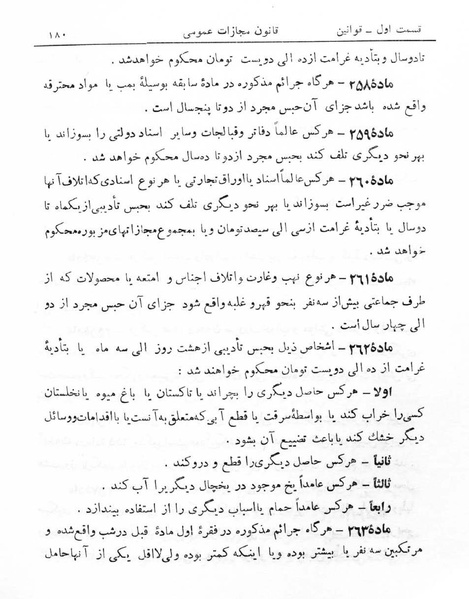 قسمت اول ـ قوانین
قانون مجازات عمومی
۱۸۰
تادوسال و بتأدیه غرامت ازده الی دویست تومان محکوم خواهدشد.
ماده۲۵۸ ـ هرگاه جرائم مذکوره در مادهٔ سابقه بوسیلهٔ بمب یا مواد محترقه
واقع شده باشد جزای آن حبس مجرد از دو تا پنجسال است .
ماده۲۵۹ ـ هرکس عالماً دفاتر وقبالجات وسایر اسناد دولتی را بسوزاند یا
بهر نحو دیگری تلف کند بحبس مجرد ازدو تا ده‌سال محکوم خواهد شد .
ماده۲۶۰ ـ هرکس عالماً اسناد یا اوراق تجارتی یا هر نوع اسنادی که اتلاف آنها
موجب ضرر غیر است بسوزاند یا بهر نحو دیگری تلف کند بحبس تأدیبی ازیکماه تا
دوسال یا بتأدیهٔ غرامت ازسی الی سیصدتومان ویا بمجموع مجازاتهای مزبوره‌محکوم
خواهد شد .
ماده۲۶۱ ـ هر نوع نهب وغارت واتلاف اجناس و امتعه یا محصولات که از
طرف جماعتی بیش‌از سه نفر بنحو قهر و غلبه واقع شود جزای آن حبس مجرد از دو
الی چهار سال است .
ماده۲۶۲ ـ اشخاص ذیل بحبس تأدیبی ازهشت روز الی سه ماه یا بتأدیهٔ
غرامت از ده الی دویست تومان محکوم خواهند شد :
اولا ـ هرکس حاصل دیگری را بچراند یا تاکستان یا باغ میوه یا نخلستان
کسی‌را خراب کند یا بواسطهٔ سرقت یا قطع آبی‌که‌متعلق به‌آنست‌یا بااقدامات ووسائل
دیگر خشك کند یا باعث تضییع آن بشود .
ثانیاً ـ هرکس حاصل دیگری‌را قطع و دروکند .
ثالثاً ـ هرکس عامداً یخ موجود در یخچال دیگریرا آب کند .
رابعاً ـ هرکس عامداً حمام یااسباب دیگری را از استفاده بیندازد .
ماده۲۶۳ ـ هرگاه جرائم مذکوره در فقرهٔ اول مادهٔ قبل درشب واقع‌شده و
مرتکبین سه نفر یا بیشتر بوده ویا اینکه کمتر بوده ولی‌لااقل یکی از آنها‌حامل